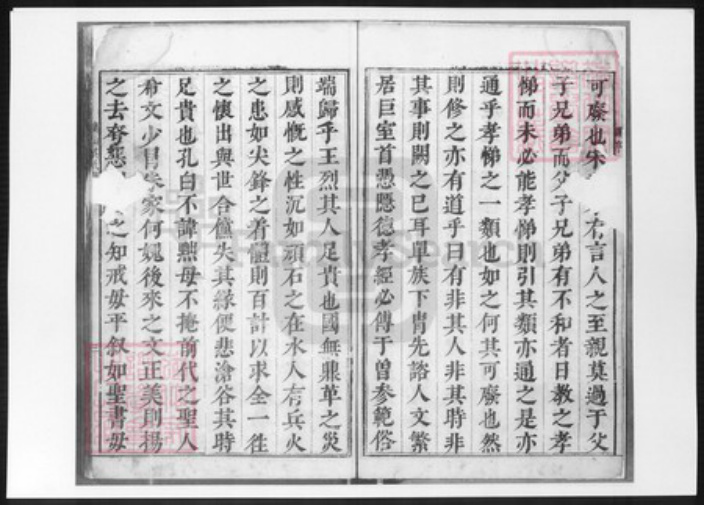 可廢也宋 言人之至親莫過于父
子兄弟而父子兄弟有不和者日教之孝
悌而未必能孝悌則引其類亦通之是亦
通乎孝悌之一類也如之何其可廢也然
則修之亦有道乎曰有非其人非其時非
其事則闕之已耳單族下胄先諮人文繁
居巨室首憑隱德孝經必傅于曾參範俗
端歸乎王烈其人足貴也國無鼎革之災
則感慨之性沉如頑石之在水人有兵火
之患如尖鋒之着體則百計以求全一徃
之懷出與世合儻失其緣便悲滄谷其時
足貴也孔白不諱㷱母不掩前代之聖人
希文少冒朱家何媿後來之文正美則揚
之去脊惡 之知戒毋平叙如聖書毋